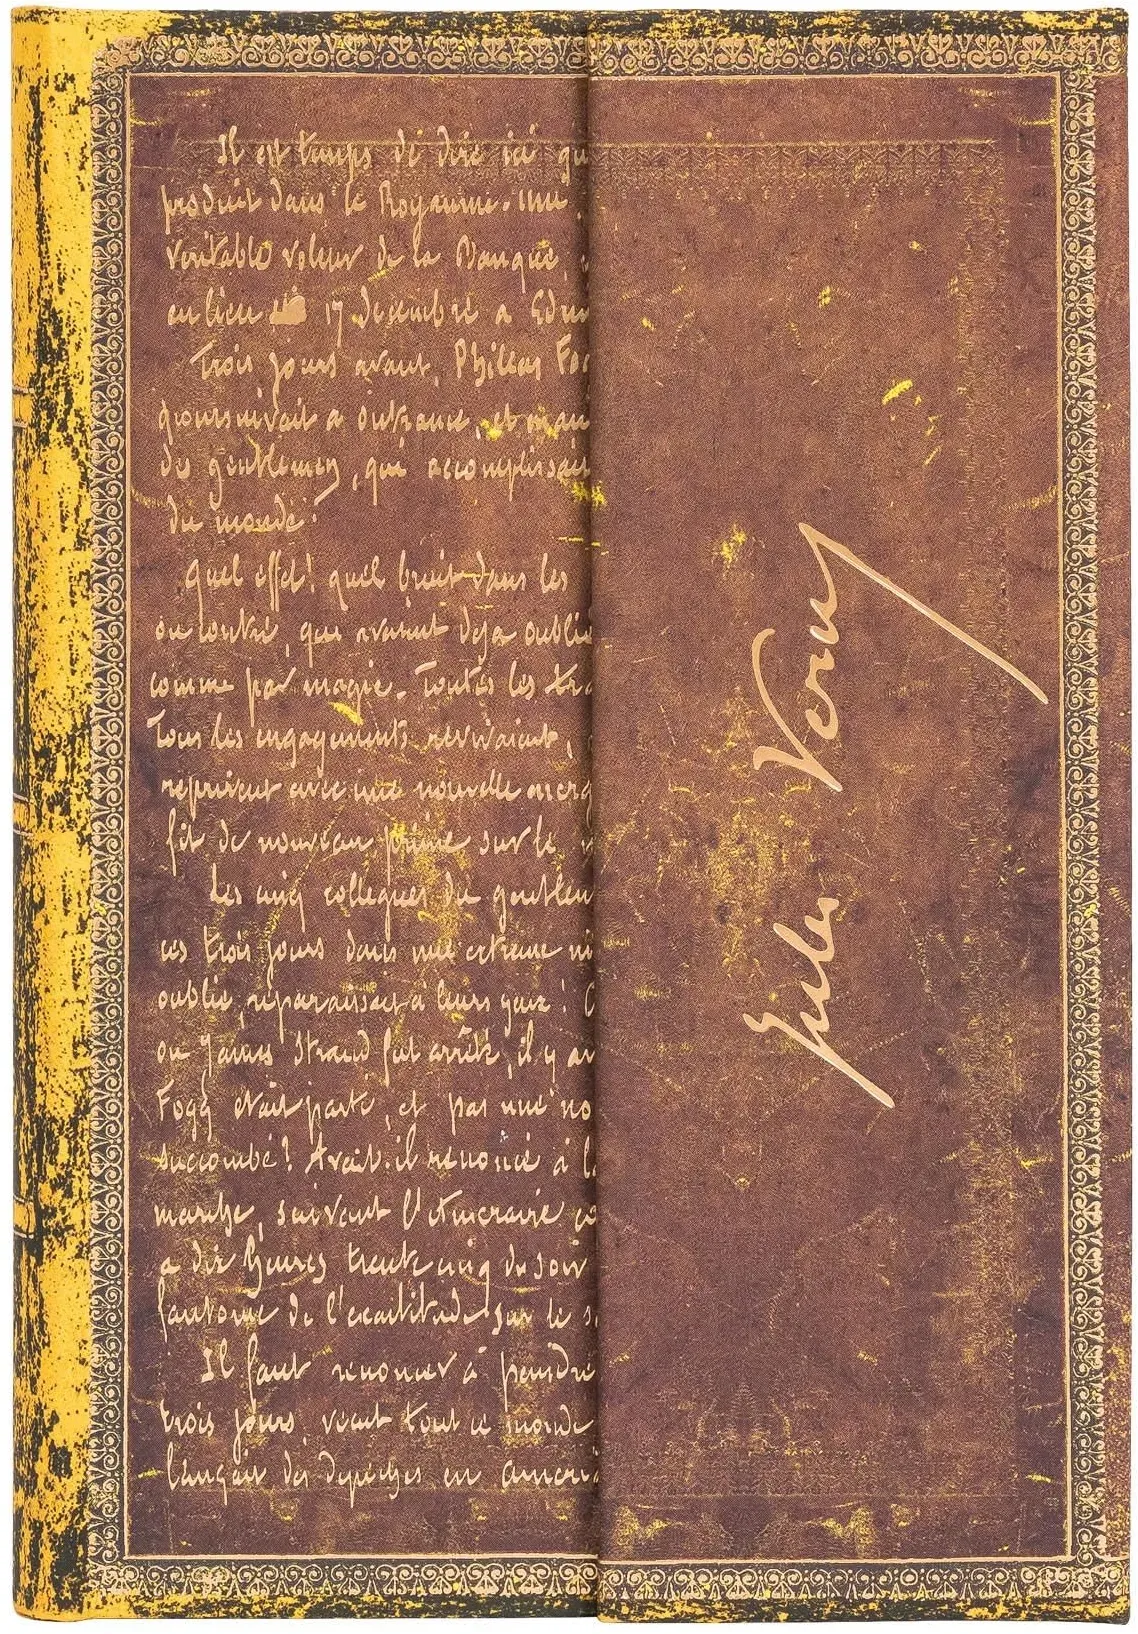 Il est temps de dire ici qu
produit dans le Royaume-uni
veritable voleur de la Banque,
eu lieu le 17 Decembre a Edim
Trois jours avant, Phileas Fo
poursuivait a outrance, et
des gentleman, qui accomplissai
du monde!
Quel effet! quel bruit dans les
ou contre, qui avaient deja oublié
comme par magie. Toutes les tra
Tous les engagements revivaient,
reprirent avec une nouvelle energ
fit de nouveau prime sur le
Les cinq collegues du gentlem
ces trois jours dans une extreme
oublié, reparaissait à leurs yeux!
ou James Strand fut arrêté, il y av
Fogg etait parti, et pas une no
succombé? Avait-il renoncé à l
marche, suivant l'itineraire
a dix heures trente cinq du soir
fantome de l'exactitude sur le s
Il faut renoncer à peindre
trois jours, vécut tout ce monde
lançait des depeches en ameri
Jules Verne